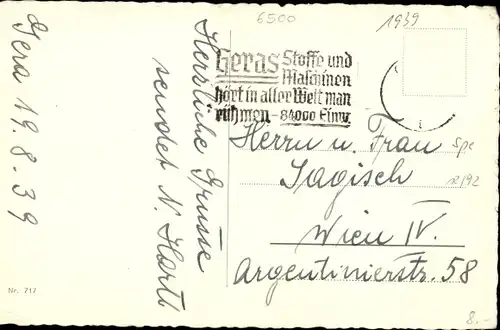 6500
1939
Gera 19.8.39
Herzliche Grüsse
sendet N. Hartl
Geras Stoffe und
Maschinen
hört in aller Welt man
rühmen – 84000 Einw.
Herrn u. Frau
Jagisch
Wien IV.
Argentinierstr. 58
Nr. 717
8.-